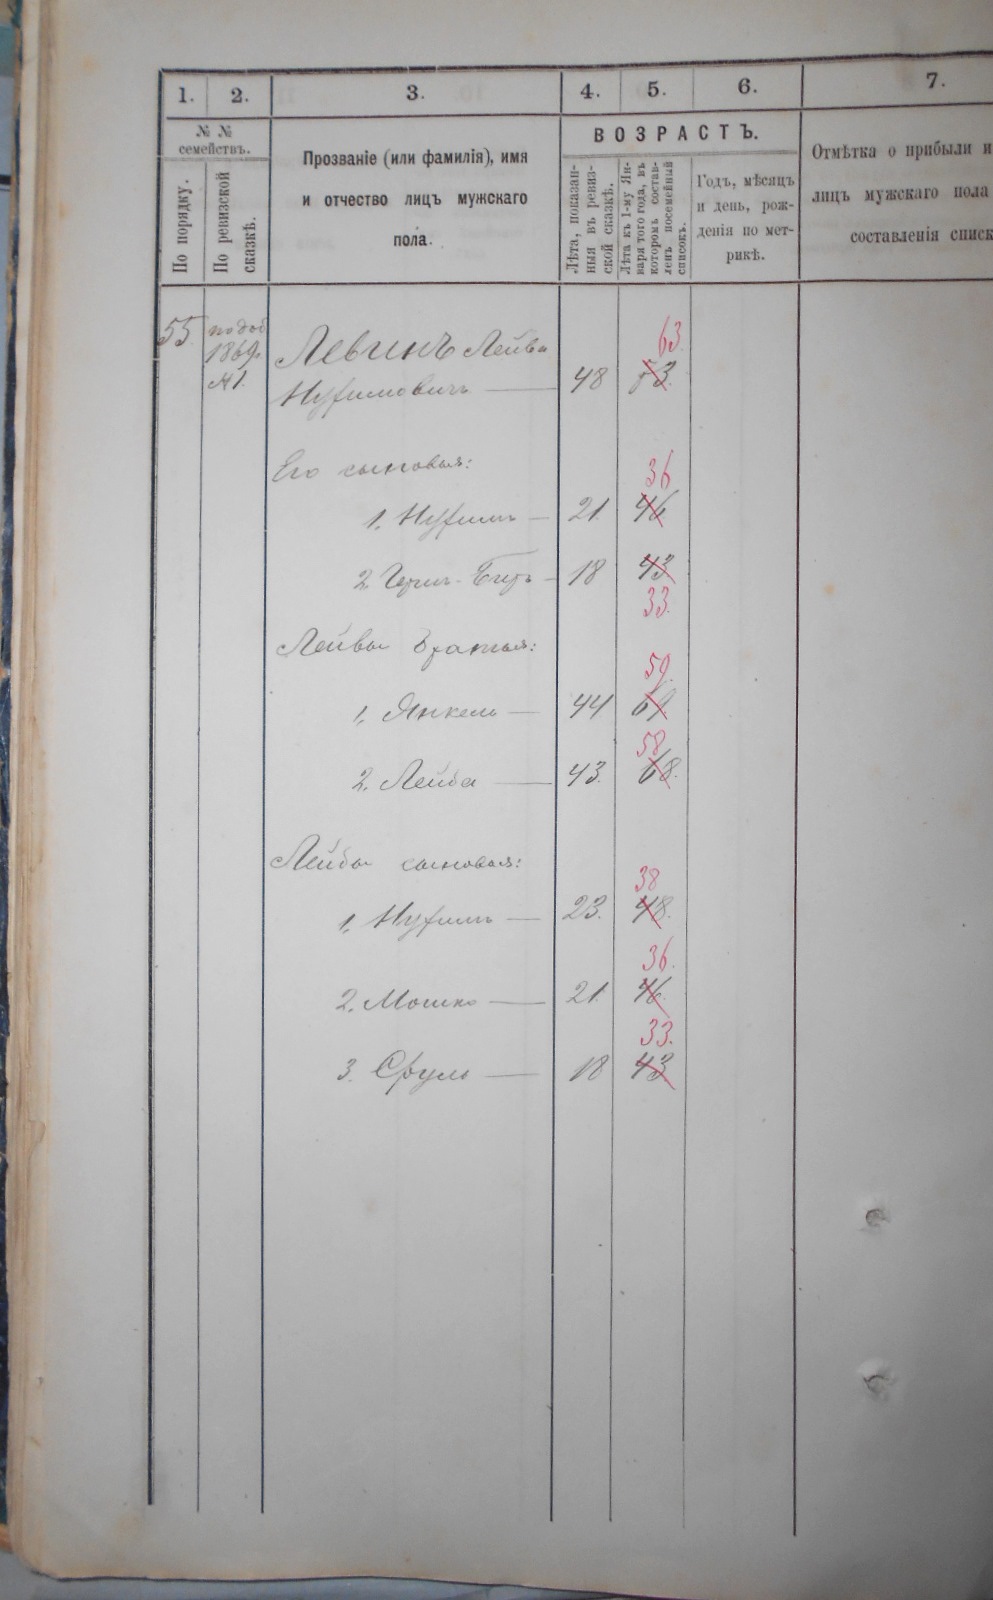 1. 2. 3. 4. 5. 6. 7.
№ №
семействъ.
По порядку.
По ревизской
сказкѣ.
Прозваніе (или фамилія), имя
и отчество лицъ мужскаго
пола.
ВОЗРАСТЪ.
Лѣта, показан-
ныя въ ревиз-
ской сказкѣ.
Лѣта къ 1-му Ян-
варя того года, въ
которомъ состав-
ленъ посемейный
списокъ.
Годъ, мѣсяцъ
и день, рож-
денія по мет-
рикѣ.
Отмѣтка о прибыли и
лицъ мужскаго пола
составленія списк
55 1869г. Левинъ 63
№1. Нухимовичъ 48 53
Его сыновья: 36
1. Нухимъ 21 46
2. 18 43
33
братья: 59
1. Янкель 44 69
58
2. Лейба 43 68
Лейбы сыновья: 38
1. Нухимъ 23 48
36
2. Мошко 21 46
33
3. Сруль 18 43